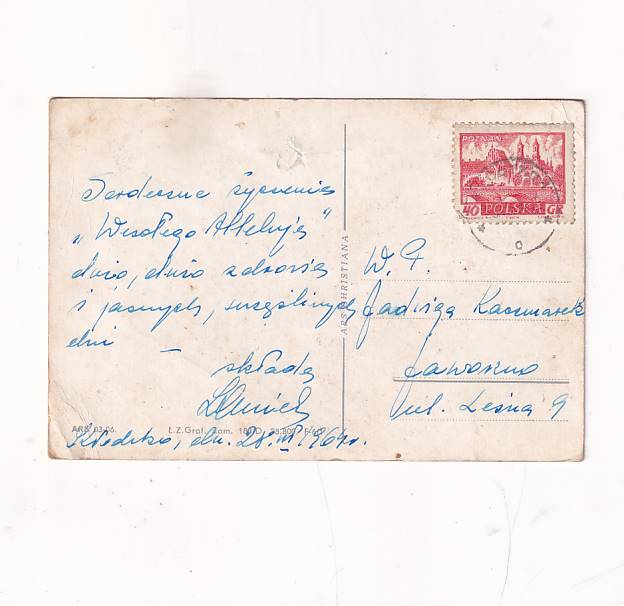 Serdeczne życzenia
„Wesołego Alleluja”
dużo, dużo zdrowia
i jasnych, szczęśliwych
dni —
składa
dn. 28. III 1964 r.
ARS 03-06. Ł.Z.Graf. Zam. F-60
ARS CHRISTIANA
POZNAŃ
40 POLSKA GR
W. P.
Jadwiga Kaczmarek
Jaworzno
ul. Leśna 9